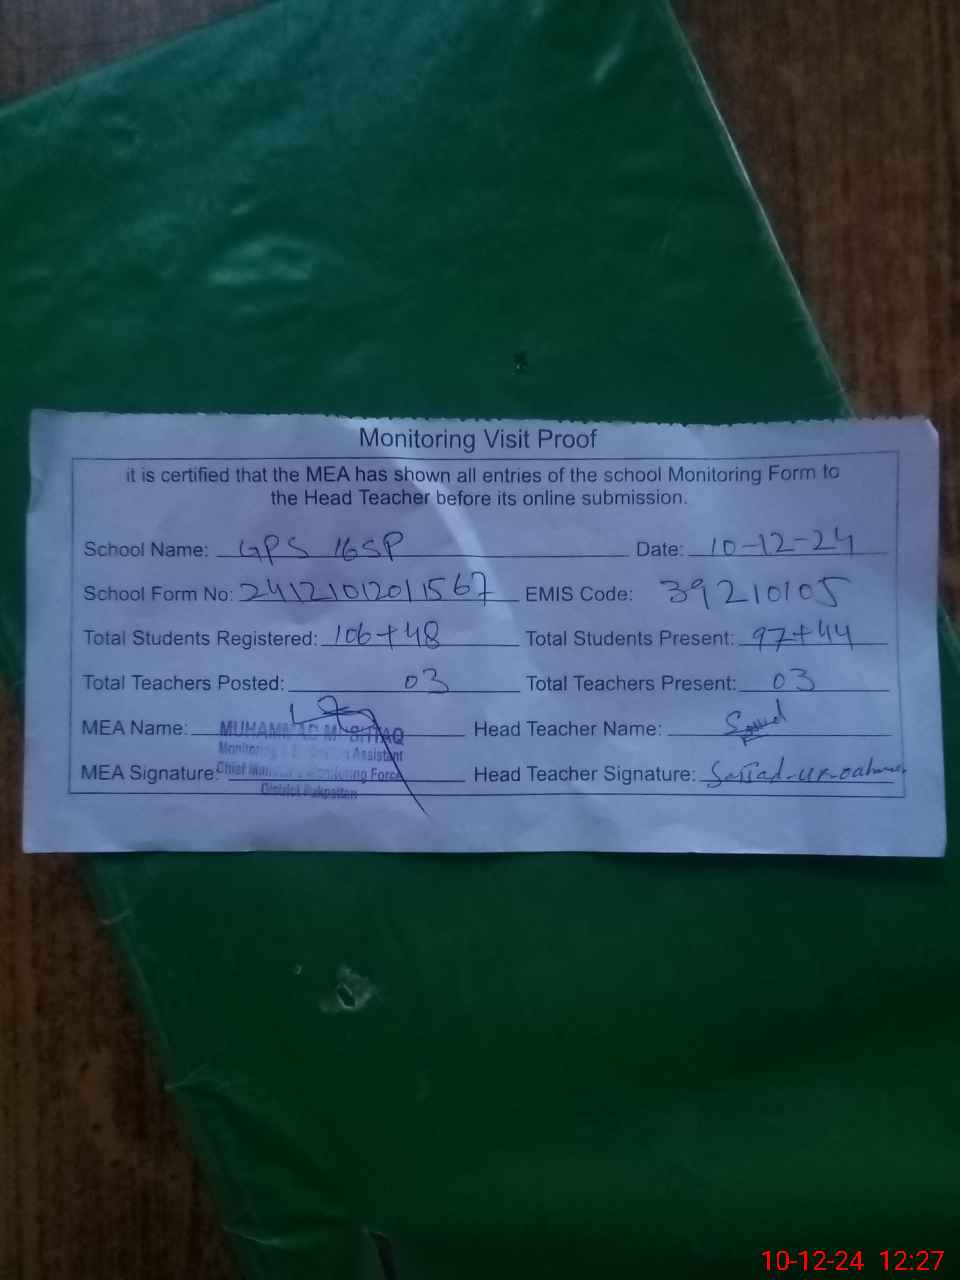 Monitoring Visit Proof
it is certified that the MEA has shown all entries of the school Monitoring Form to
the Head Teacher before its online submission.
School Name: GPS 16SP Date: 10-12-24
School Form No: 24121012011567 EMIS Code: 39210105
Total Students Registered: 106+48 Total Students Present: 97+44
Total Teachers Posted: 03 Total Teachers Present: 03
MEA Name: MUHAMMAD Head Teacher Name:
Monitoring Assistant
MEA Signature: Chief Monitoring Force Head Teacher Signature:
District Pakpattan
10-12-24 12:27